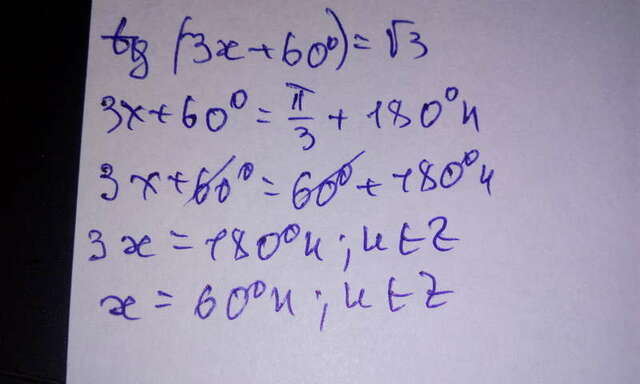 tg (3x+60°)=√3
3x+60°=π/3+180°n
3x+60°=60°+180°n
3x=180°n; n∈Z
x=60°n; n∈Z